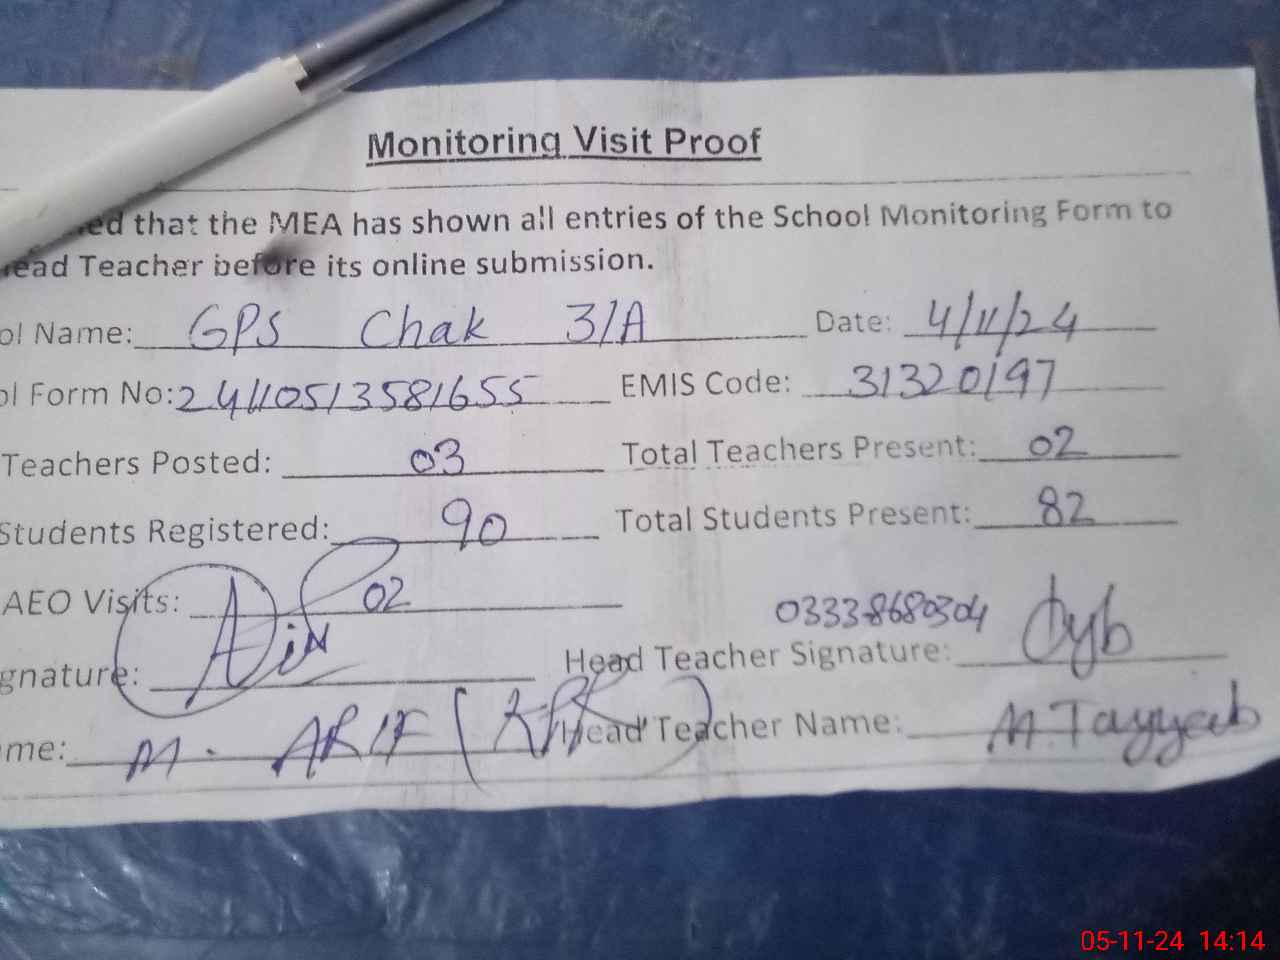 Monitoring Visit Proof
that the MEA has shown all entries of the School Monitoring Form to
ead Teacher before its online submission.
ol Name: GPS Chak 3/A Date: 4/11/24
ol Form No: 24110513581655 EMIS Code: 31320197
Teachers Posted: 03 Total Teachers Present: 02
Students Registered: 90 Total Students Present: 82
AEO Visits: 02
03338680304
gnature: Head Teacher Signature:
me: M. ARIF Head Teacher Name: M. Tayyab
05-11-24 14:14